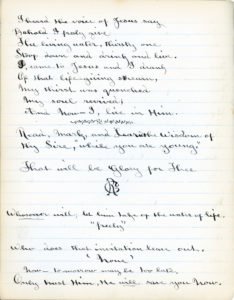 I heard the voice of Jesus say
Behold I freely give
The living water, thirsty one,
Stoop down and drink and live.
I came to Jesus and I drank
Of that life-giving stream,
My thirst was quenched
My soul revived,
And now I live in Him.
Read, Mark, and Learn the Wisdom of
thy Sire, "while you are young"
That will be Glory for Thee.
Whosoever will, let him take of the water of life,
"freely"
Who does that invitation leave out.
"None"
Now – to-morrow may be too late,
Only trust Him, He will save you now.